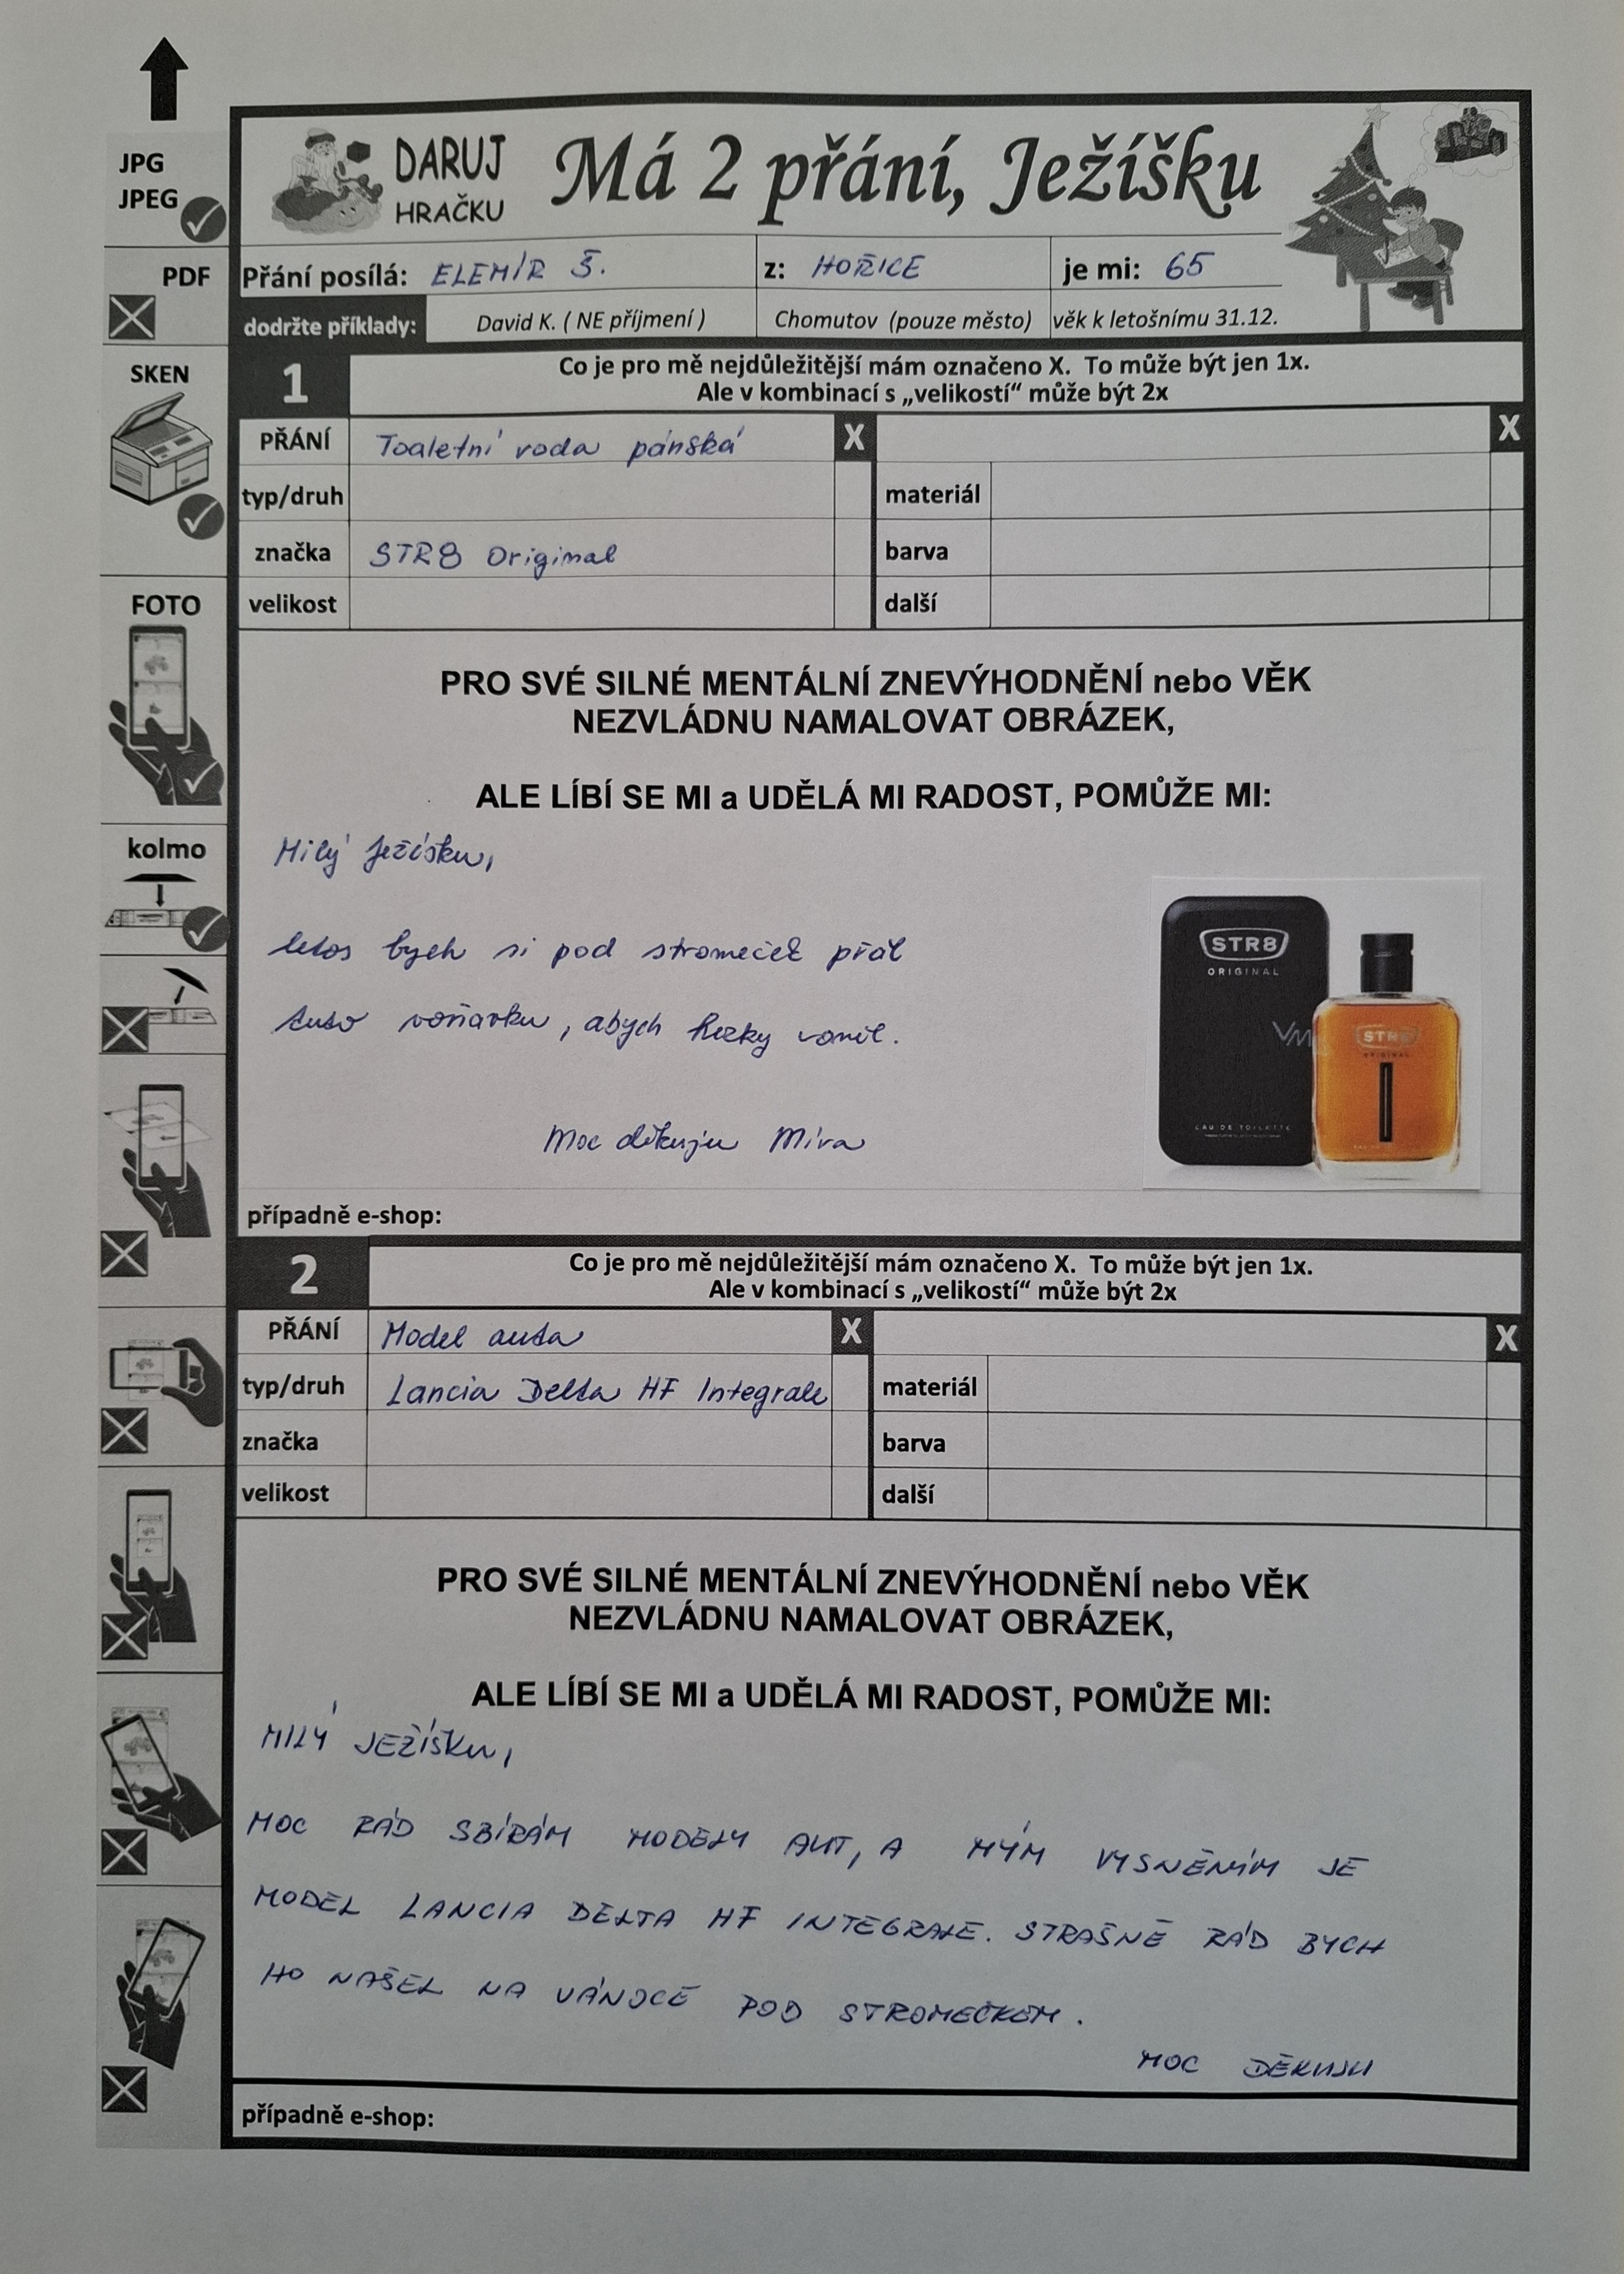 JPG
JPEG
PDF
SKEN
FOTO
kolmo
DARUJ
HRAČKU
Má 2 přání, Ježíšku
Přání posílá: ELEMÍR Š. z: HOŘICE je mi: 65
dodržte příklady: David K. ( NE příjmení ) Chomutov (pouze město) věk k letošnímu 31.12.
1 Co je pro mě nejdůležitější mám označeno X. To může být jen 1x.
Ale v kombinací s „velikostí“ může být 2x
PŘÁNÍ Toaletní voda pánská X X
typ/druh materiál
značka STR8 Original barva
velikost další
PRO SVÉ SILNÉ MENTÁLNÍ ZNEVÝHODNĚNÍ nebo VĚK
NEZVLÁDNU NAMALOVAT OBRÁZEK,
ALE LÍBÍ SE MI a UDĚLÁ MI RADOST, POMŮŽE MI:
Milý Ježíšku,
letos bych si pod stromeček přál
tuto voňavku, abych hezky voněl.
Moc děkuju Míra
STR8
ORIGINAL
EAU DE TOILETTE
STR8
ORIGINAL
případně e-shop:
2 Co je pro mě nejdůležitější mám označeno X. To může být jen 1x.
Ale v kombinací s „velikostí“ může být 2x
PŘÁNÍ Model auta X X
typ/druh Lancia Delta HF Integrale materiál
značka barva
velikost další
PRO SVÉ SILNÉ MENTÁLNÍ ZNEVÝHODNĚNÍ nebo VĚK
NEZVLÁDNU NAMALOVAT OBRÁZEK,
ALE LÍBÍ SE MI a UDĚLÁ MI RADOST, POMŮŽE MI:
MILÝ JEŽÍŠKU,
MOC RÁD SBÍRÁM MODELY AUT, A MÝM VYSNĚNÝM JE
MODEL LANCIA DELTA HF INTEGRALE. STRAŠNĚ RÁD BYCH
HO NAŠEL NA VÁNOCE POD STROMEČKEM.
MOC DĚKUJU
případně e-shop: